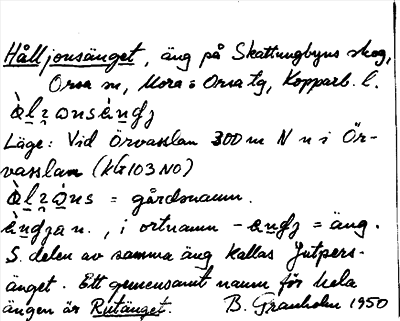 Hålljonsänget, äng på Skattungbyns skog,
Orsa sn, Mora o Orsa tg, Kopparb. l.
Läge: Vid Örvasslan 300 m N n i Ör-
vasslan (KG103 NO)
= gårdsnamn.
i ortnamn = äng.
S. delen av samma äng kallas Jutpers-
änget. Ett gemensamt namn för hela
ängen är Rutänget. B. Granholm 1950